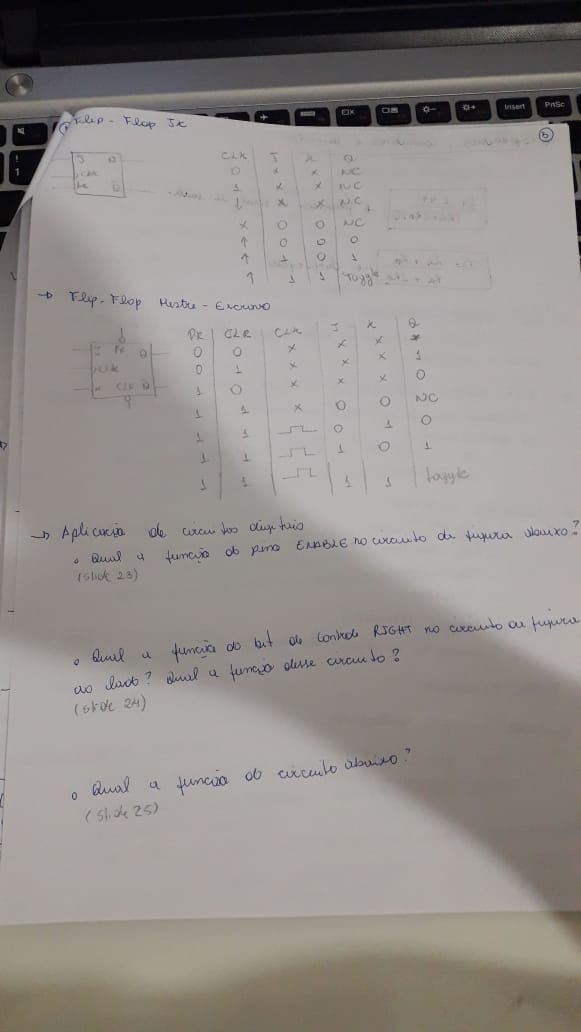 Flip-Flop JK
5
J Q
CLK
K Q
CLK J K Q
0 x x NC
1 x x NC
↓ x x NC
x 0 0 NC
↑ 0 0 0
↑ 1 0 1
↑ 1 1 Toggle
→ Flip-Flop Mestre-Escravo
J PR Q
CLK
K CLR Q
PR CLR CLK J K Q
0 0 x x x *
0 1 x x x 1
1 0 x x x 0
1 1 x 0 0 NC
1 1 0 1 0
1 1 1 0 1
1 1 1 1 toggle
→ Aplicação de circuitos digitais
• Qual a função do pino ENABLE no circuito da figura abaixo?
(slide 23)
• Qual a função do bit de controle RIGHT no circuito da figura
ao lado? Qual a função desse circuito?
(slide 24)
• Qual a função do circuito abaixo?
(slide 25)
Insert
PrtSc
!
1